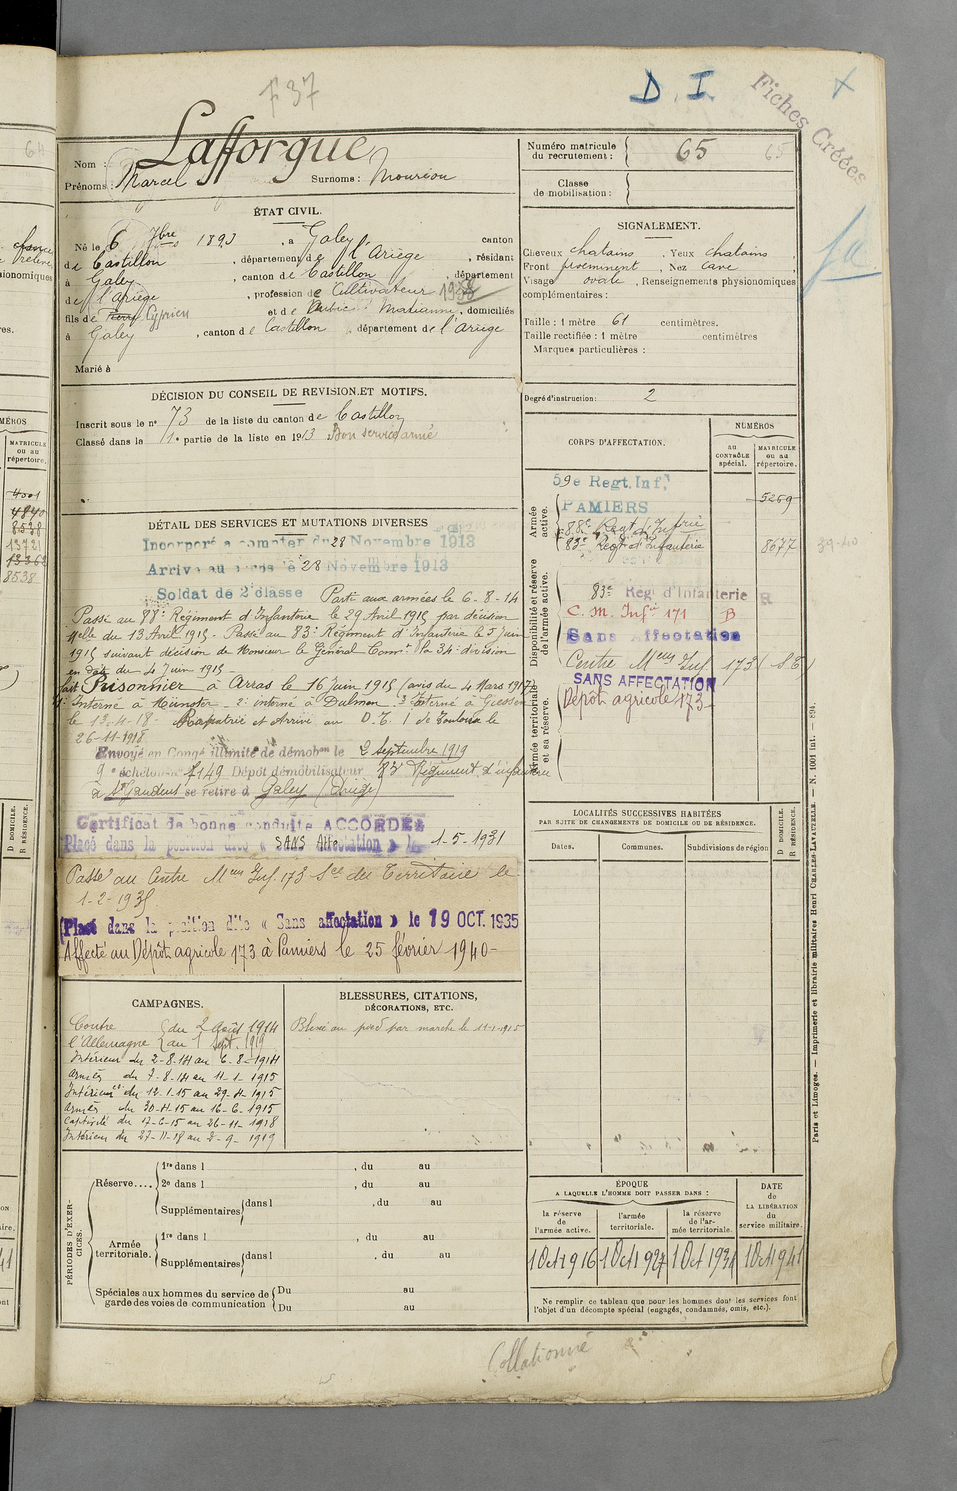 F 37
D. I.
Fiches Créées
Lafforgue
Nom :
Prénoms : Marcel Surnoms : Mourion
Numéro matricule du recrutement : 65
Classe de mobilisation :
ÉTAT CIVIL.
Né le 6 7bre 1893, à Galey, canton
de Castillon, département de l'Ariège, résidant
à Galey, canton de Castillon, département
de l'Ariège, profession de Cultivateur
fils de Cyprien et de Marianne, domiciliés
à Galey, canton de Castillon, département de l'Ariège
Marié à
SIGNALEMENT.
Cheveux chatains, Yeux chatains
Front proéminent, Nez cave,
Visage ovale, Renseignements physionomiques
complémentaires :
Taille : 1 mètre 61 centimètres.
Taille rectifiée : 1 mètre centimètres
Marques particulières :
Degré d'instruction : 2
DÉCISION DU CONSEIL DE REVISION ET MOTIFS.
Inscrit sous le n° 73 de la liste du canton de Castillon
Classé dans la 1e partie de la liste en 1913 Bon service armé
DÉTAIL DES SERVICES ET MUTATIONS DIVERSES
Incorporé à compter du 28 Novembre 1913
Arrivé au corps le 28 Novembre 1913
Soldat de 2e classe Parti aux armées le 6-8-14
Passé au 88e Régiment d'Infanterie le 29 Avril 1915 par décision
Mlle du 13 Avril 1915 - Passé au 83e Régiment d'Infanterie le 5 Juin
1915 suivant décision de Monsieur le Général Comt la 34e division
en date du 4 Juin 1915 -
fait Prisonnier à Arras le 16 Juin 1915 (avis du 4 Mars 1917)
1° Interné à Münster - 2° interné à Dulmen 3° interné à Giessen
le 12-4-18- Rapatrié et Arrivé au D. C. 1 de Toulouse le
26-11-1918
Envoyé en Congé illimité de démobon le 2 Septembre 1919
9e échelon n° 4149 Dépôt démobilisateur 83e Régiment d'infanterie
à St Gaudens se retire à Galey (Ariège)
Certificat de bonne conduite ACCORDÉ
Placé dans la position dite « SANS Affectation » le 1-5-1931
Passé au Centre Mem Inf. 173 Son du Territoire le
1-2-1935
Placé dans la position dite « Sans affectation » le 19 OCT. 1935
Affecté au Dépôt agricole 173 à Pamiers le 25 février 1940 -
CORPS D'AFFECTATION.
NUMÉROS
au CONTRÔLE spécial.
MATRICULE ou au répertoire.
Armée active.
59e Regt. Inf.
PAMIERS
5269
88e Regt d'Infrie
83e Regt d'Infanterie 8677
39-40
Disponibilité et réserve de l'armée active.
83e Régt d'Infanterie R
C. M. Infie 171 B
Sans Affectation
Centre Mem Inf 173 (S.T)
SANS AFFECTATION
Armée territoriale et sa réserve.
Dépôt agricole 173 -
LOCALITÉS SUCCESSIVES HABITÉES
PAR SUITE DE CHANGEMENTS DE DOMICILE OU DE RÉSIDENCE.
Dates.
Communes.
Subdivisions de région
D DOMICILE.
R RÉSIDENCE.
CAMPAGNES.
Contre du 2 Août 1914
l'Allemagne au 1 Sept. 1919
Intérieur du 2-8-14 au 6-8-1914
Armées du 7-8-14 au 11-1-1915
Intérieur du 12-1-15 au 29-4-1915
Armées du 30-4-15 au 16-6-1915
Captivité du 17-6-15 au 26-11-1918
Intérieur du 27-11-18 au 2-9-1919
BLESSURES, CITATIONS,
DÉCORATIONS, ETC.
Blessé au pied par marche le 11-1-1915
PÉRIODES D'EXERCICES.
Réserve....
1re dans l , du au
2e dans l , du au
Supplémentaires dans l , du au
Armée territoriale.
1re dans l , du au
Supplémentaires dans l , du au
Spéciales aux hommes du service de garde des voies de communication
Du au
Du au
ÉPOQUE
A LAQUELLE L'HOMME DOIT PASSER DANS :
la réserve de l'armée active.
l'armée territoriale.
la réserve de l'armée territoriale.
DATE de LA LIBÉRATION du service militaire.
1 Oct 1916
1 Oct 1927
1 Oct 1934
1 Oct 1941
Ne remplir ce tableau que pour les hommes dont les services font
l'objet d'un décompte spécial (engagés, condamnés, omis, etc.).
Paris et Limoges. — Imprimerie et librairie militaires Henri CHARLES-LAVAUZELLE. — N. 1001 int. — 894.
Collationné